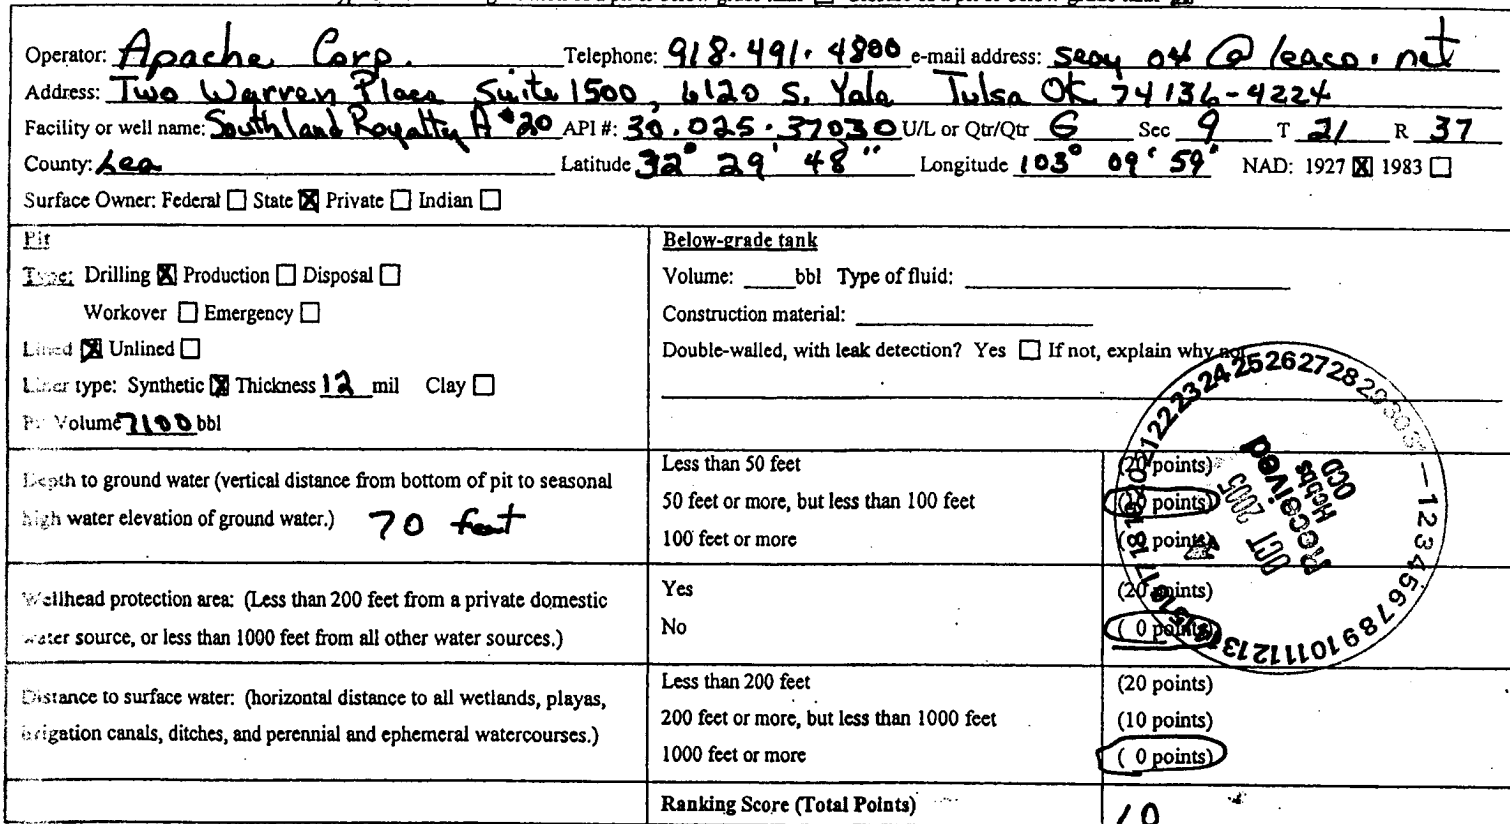 Operator: Apache Corp. Telephone: 918.491.4800 e-mail address: seay 04 @ leaco.net
Address: Two Warren Place Suite 1500, 6120 S. Yale Tulsa OK 74136-4224
Facility or well name: Southland Royalty A #20 API #: 30.025.37030 U/L or Qtr/Qtr G Sec 9 T 21 R 37
County: Lea Latitude 32° 29' 48" Longitude 103° 09' 59" NAD: 1927 ☒ 1983 ☐
Surface Owner: Federal ☐ State ☒ Private ☐ Indian ☐
Pit
Type: Drilling ☒ Production ☐ Disposal ☐
Workover ☐ Emergency ☐
Lined ☒ Unlined ☐
Liner type: Synthetic ☒ Thickness 12 mil Clay ☐
Pit Volume 7100 bbl
Below-grade tank
Volume: bbl Type of fluid:
Construction material:
Double-walled, with leak detection? Yes ☐ If not, explain why not
Depth to ground water (vertical distance from bottom of pit to seasonal
high water elevation of ground water.) 70 feet
Less than 50 feet (20 points)
50 feet or more, but less than 100 feet (10 points)
100 feet or more (0 points)
Wellhead protection area: (Less than 200 feet from a private domestic
water source, or less than 1000 feet from all other water sources.)
Yes (20 points)
No ( 0 points)
Distance to surface water: (horizontal distance to all wetlands, playas,
irrigation canals, ditches, and perennial and ephemeral watercourses.)
Less than 200 feet (20 points)
200 feet or more, but less than 1000 feet (10 points)
1000 feet or more ( 0 points)
Ranking Score (Total Points) 10
OCT 2005
Received
Hobbs
OCD